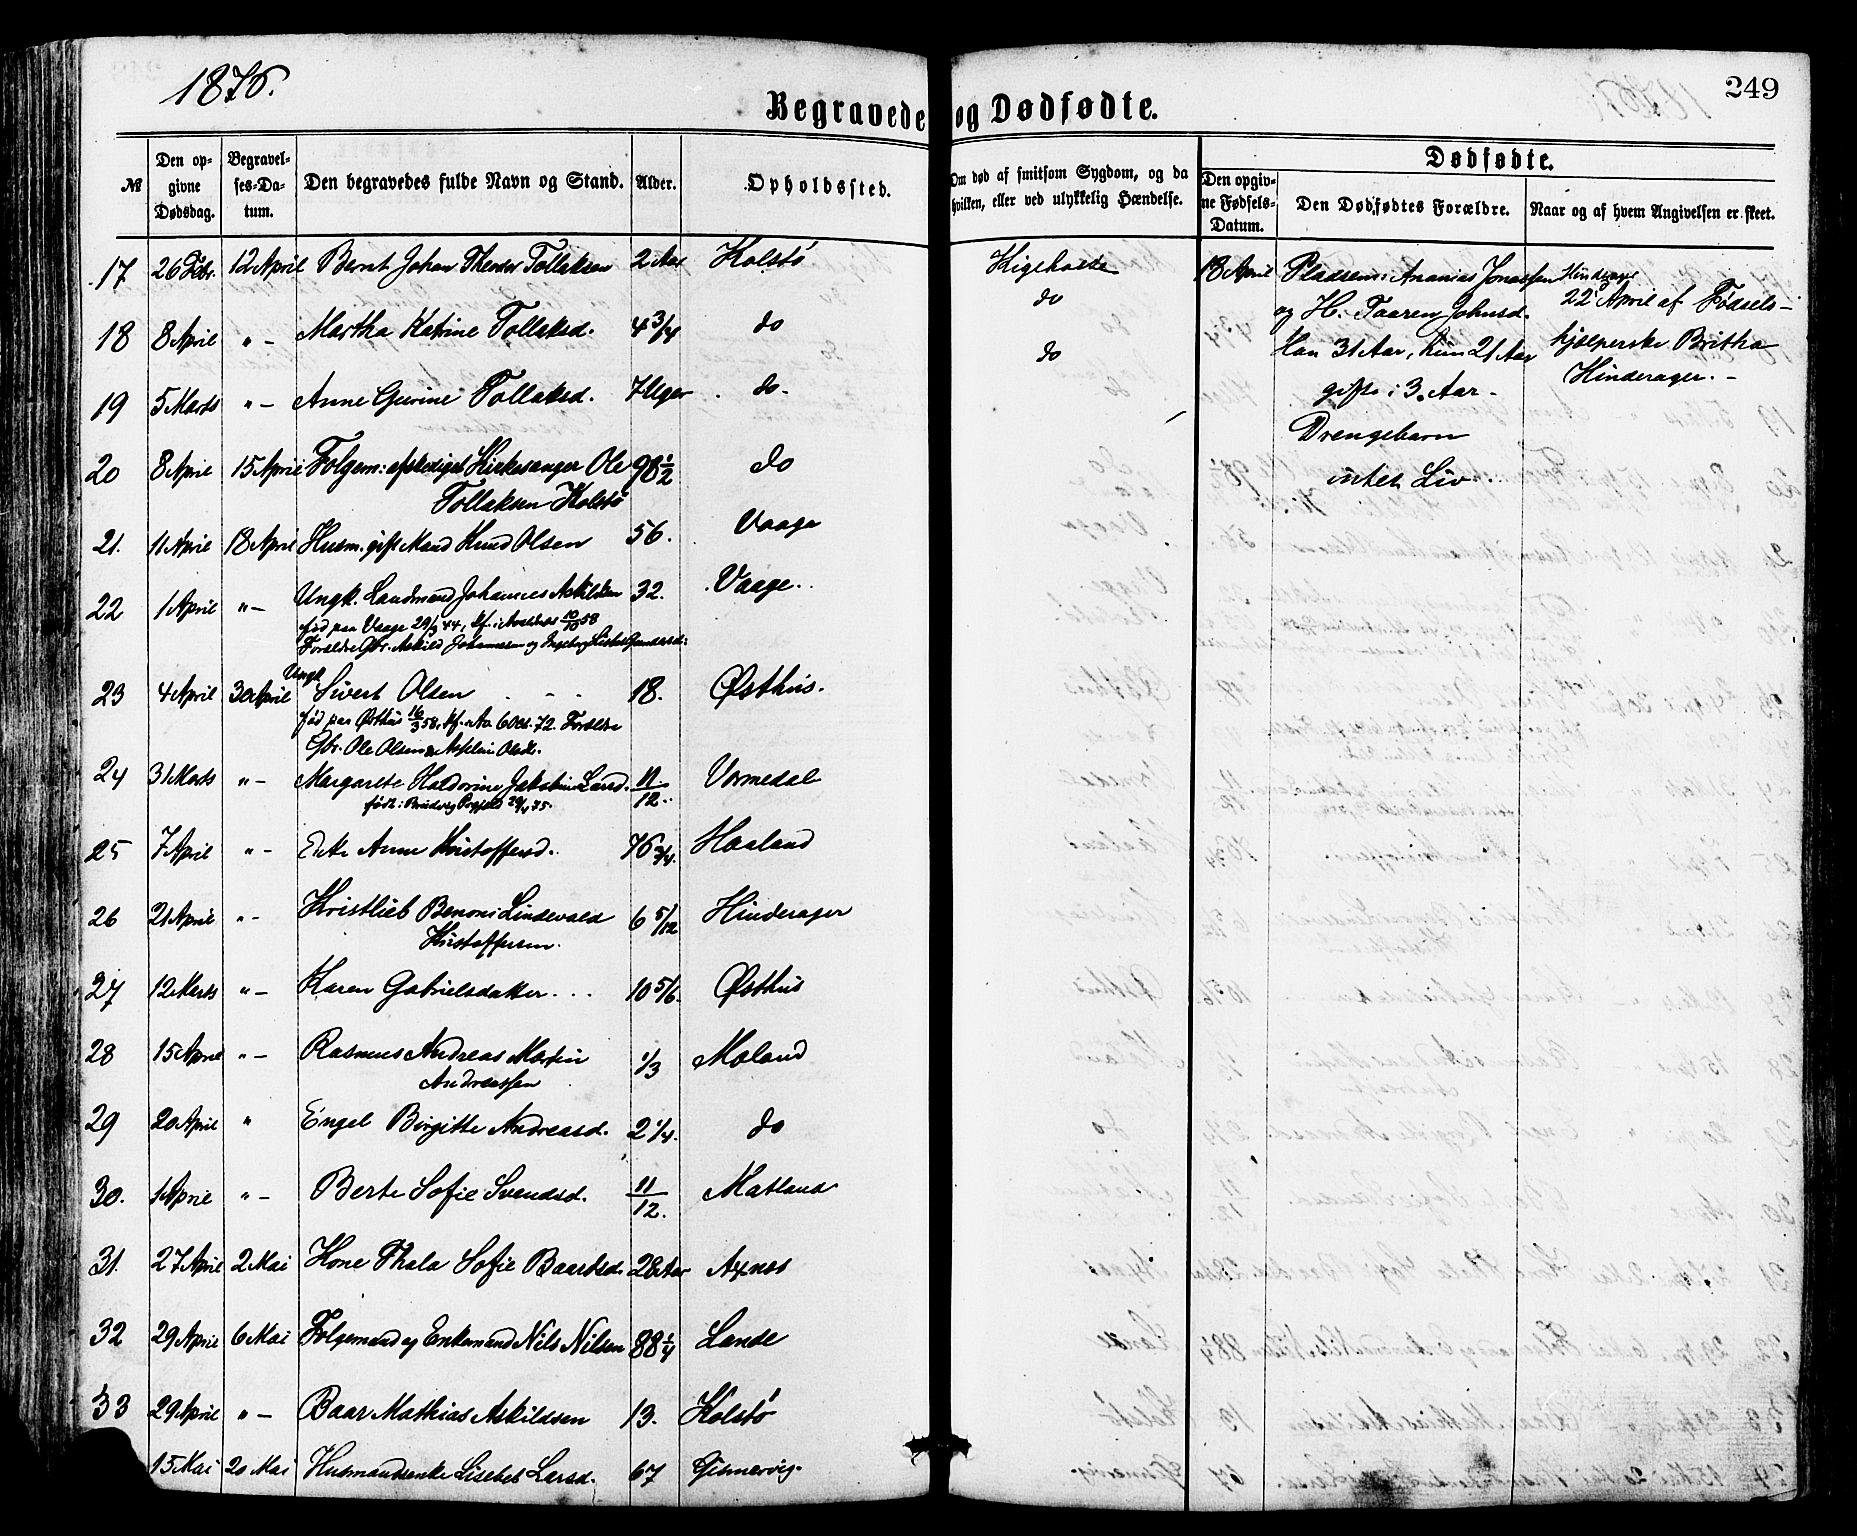 1876.
249
Begravede og Dødfødte.
№
Den opgivne Dødsdag.
Begravelses-Datum.
Den begravedes fulde Navn og Stand.
Alder.
Opholdssted.
Om død af smitsom Sygdom, og da hvilken, eller ved ulykkelig Hændelse.
Dødfødte.
Den opgivne Fødsels-Datum.
Den Dødfødtes Forældre.
Naar og af hvem Angivelsen er skeet.
17 26 Febr. 12 April Bernt Johan Theodor Tollaksen 2 Aar Kolstø Kighoste
18 8 April " – Martha Katrine Tollaksd. 4 3/4 do do
19 5 Marts " – Anne Gurine Tollaksd. 7 Uger do. do
20 8 April 15 April Folgem: afskediget Kirkesanger Ole 98 1/2 do
Tollaksen Kolstø
21. 11 April 18 April Husm. gift Mand Knud Olsen 56. Vaage
22 1 April " – Ungk. Landmand Johannes Askildsen 32. Vaage.
fød paa Vaage 29/9 44, kf. i 58
Forældre Gbr. Askild Johannesen og Ingeborg Lisbet Gundersd:
23 4 April 30 April Ungk Sivert Olsen 18. Østhus.
fød paa Østhus 16/3 58, kf. Aa. 6 Oct. 72. Forældre
Gbr. Ole Olsen & Olsdtr.
24 31 Marts " – Margarete Haldorine Jakobine Larsd. 11/12. Vormedal
75.
25 7 April " – Enke Anne Kristoffersd. 76 3/4. Haaland
26 21 April " – Kristlieb Benoni Lindevald 6 5/12 Hinderager
Kristoffersen.
27 12 Marts " – Karen Gabrielsdatter . . . 10 5/6. Østhus
28 15 April " – Rasmus Andreas Martin 1/3 Moland
Andreassen
29 20 April " Engel Birgitte Andreasd. 2 1/4. do
30. 1 April " – Berte Sofie Svendsd. 11/12. Matland
31. 27 April 2 Mai Kone Thala Sofie Baardsd. 28 Aar Axnes
32 29 April 6 Mai Folgemand og Enkemand Nils Nilsen 88 1/4 Lande
33 29 April " – Baar Mathias Askildsen 13. Kolstø
15 Mai 20 Mai Husmandsenke Lisebet Larsd. 67 Gismervig.
18 April
Pladsem: Ananias Jonassen
og H. Taaren Johnsd.
Han 31 Aar, hun 21 Aar
gifte i 3 Aar.
Drengebarn
intet Liv.
Hinderager
22 April af Fødsels-
hjelperske Britha
Hinderager. –